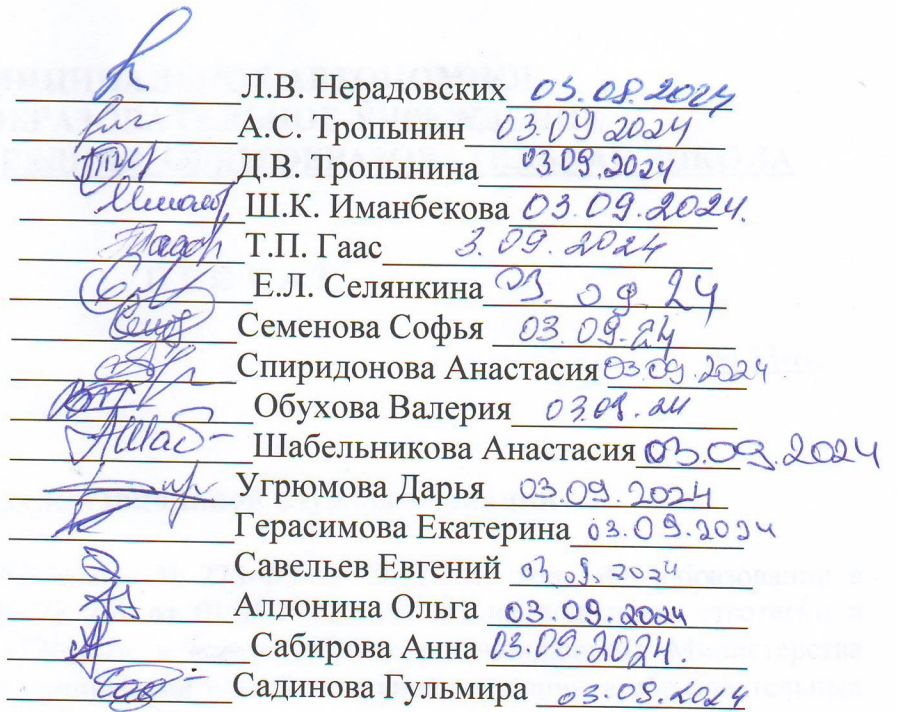 Л.В. Нерадовских 03.08.2024
А.С. Тропынин 03.09 2024
Д.В. Тропынина 03.09.2024
Ш.К. Иманбекова 03.09.2024.
Т.П. Гаас 3.09.2024
Е.Л. Селянкина 03.09.24
Семенова Софья 03.09.24
Спиридонова Анастасия 03.09.2024
Обухова Валерия 03.09.24
Шабельникова Анастасия 03.09.2024
Угрюмова Дарья 03.09.2024
Герасимова Екатерина 03.09.2024
Савельев Евгений 03.09.2024
Алдонина Ольга 03.09.2024
Сабирова Анна 03.09.2024.
Садинова Гульмира 03.09.2024